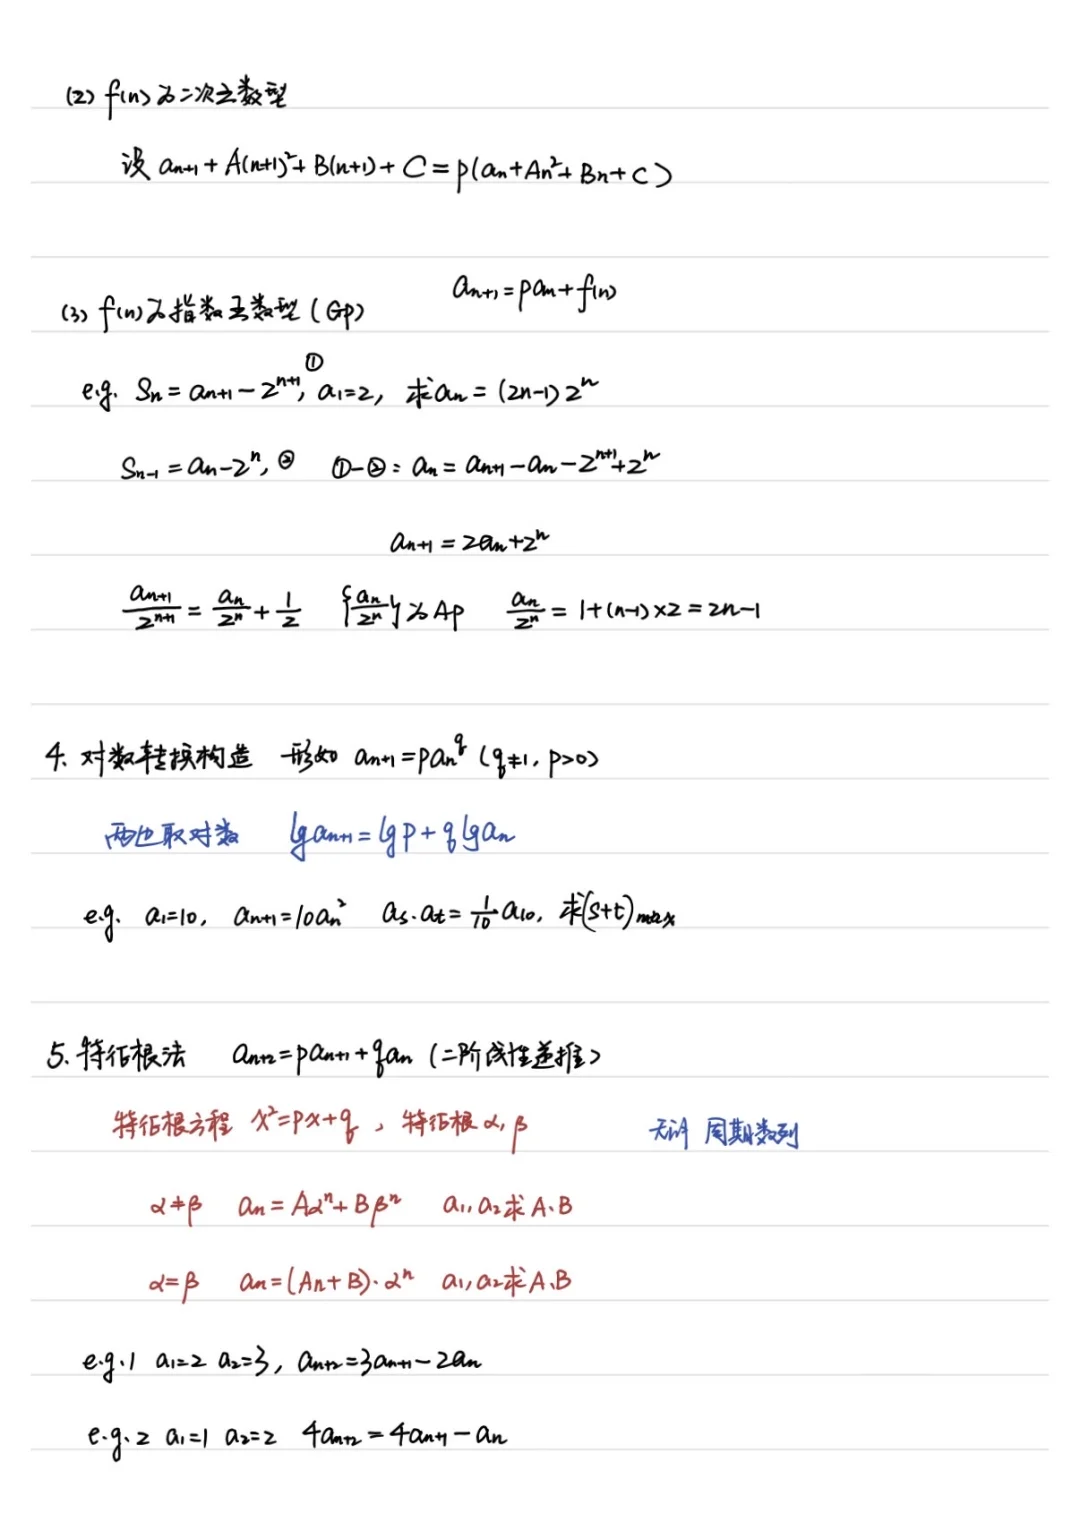 (2) f(n)为二次函数型
设 aₙ₊₁ + A(n+1)² + B(n+1) + C = p(aₙ + An² + Bn + C)
aₙ₊₁ = paₙ + f(n)
(3) f(n)为指数函数型 (Gp)
e.g. Sₙ = aₙ₊₁ - 2ⁿ⁺¹, ① a₁=2, 求aₙ = (2n-1)2ⁿ
Sₙ₋₁ = aₙ - 2ⁿ, ② ①-②: aₙ = aₙ₊₁ - aₙ - 2ⁿ⁺¹ + 2ⁿ
aₙ₊₁ = 2aₙ + 2ⁿ
aₙ₊₁/2ⁿ⁺¹ = aₙ/2ⁿ + 1/2 {aₙ/2ⁿ}为Ap aₙ/2ⁿ = 1+(n-1)×2 = 2n-1
4. 对数转换构造 形如 aₙ₊₁ = paₙ^q (q≠1, p>0)
两边取对数 lg aₙ₊₁ = lg p + q lg aₙ
e.g. a₁=10, aₙ₊₁ = 10aₙ² aₛ·aₜ = 1/10 a₁₀, 求(s+t)max
5. 特征根法 aₙ₊₂ = paₙ₊₁ + qaₙ (二阶线性递推)
特征根方程 x² = px + q, 特征根 α, β 无解 周期数列
α≠β aₙ = Aαⁿ + Bβⁿ a₁, a₂求A、B
α=β aₙ = (An+B)·αⁿ a₁, a₂求A、B
e.g.1 a₁=2 a₂=3, aₙ₊₂ = 3aₙ₊₁ - 2aₙ
e.g.2 a₁=1 a₂=2 4aₙ₊₂ = 4aₙ₊₁ - aₙ